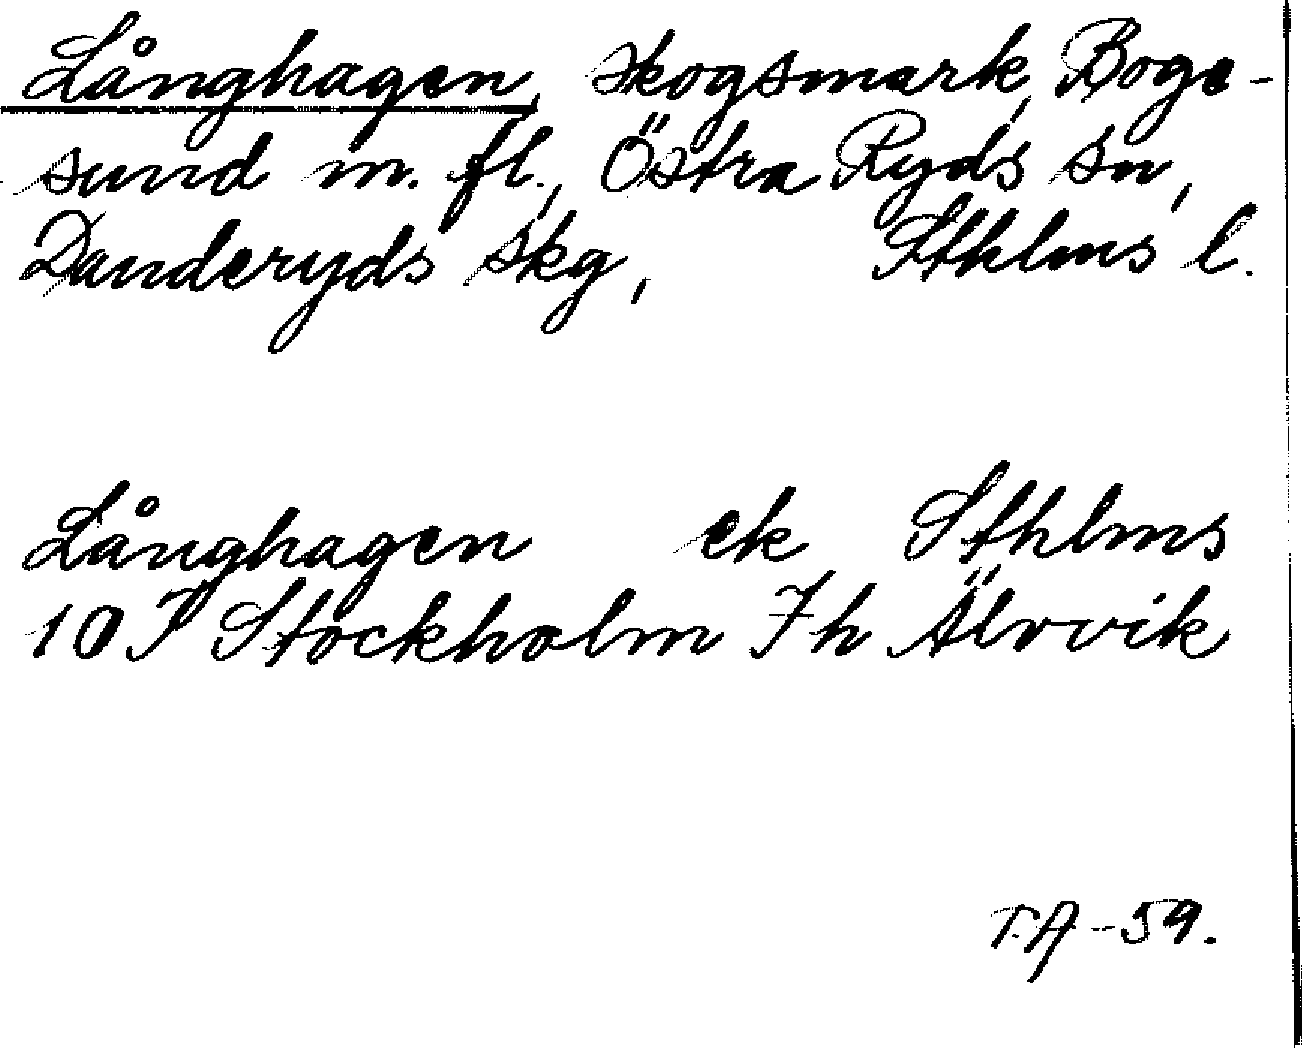 Långhagen, skogsmark, Boge-
sund m. fl., Östra Ryds sn,
Danderyds skg, Sthlms l.
Långhagen ek Sthlms
10 I Stockholm 7h Älvvik
T.A -59.